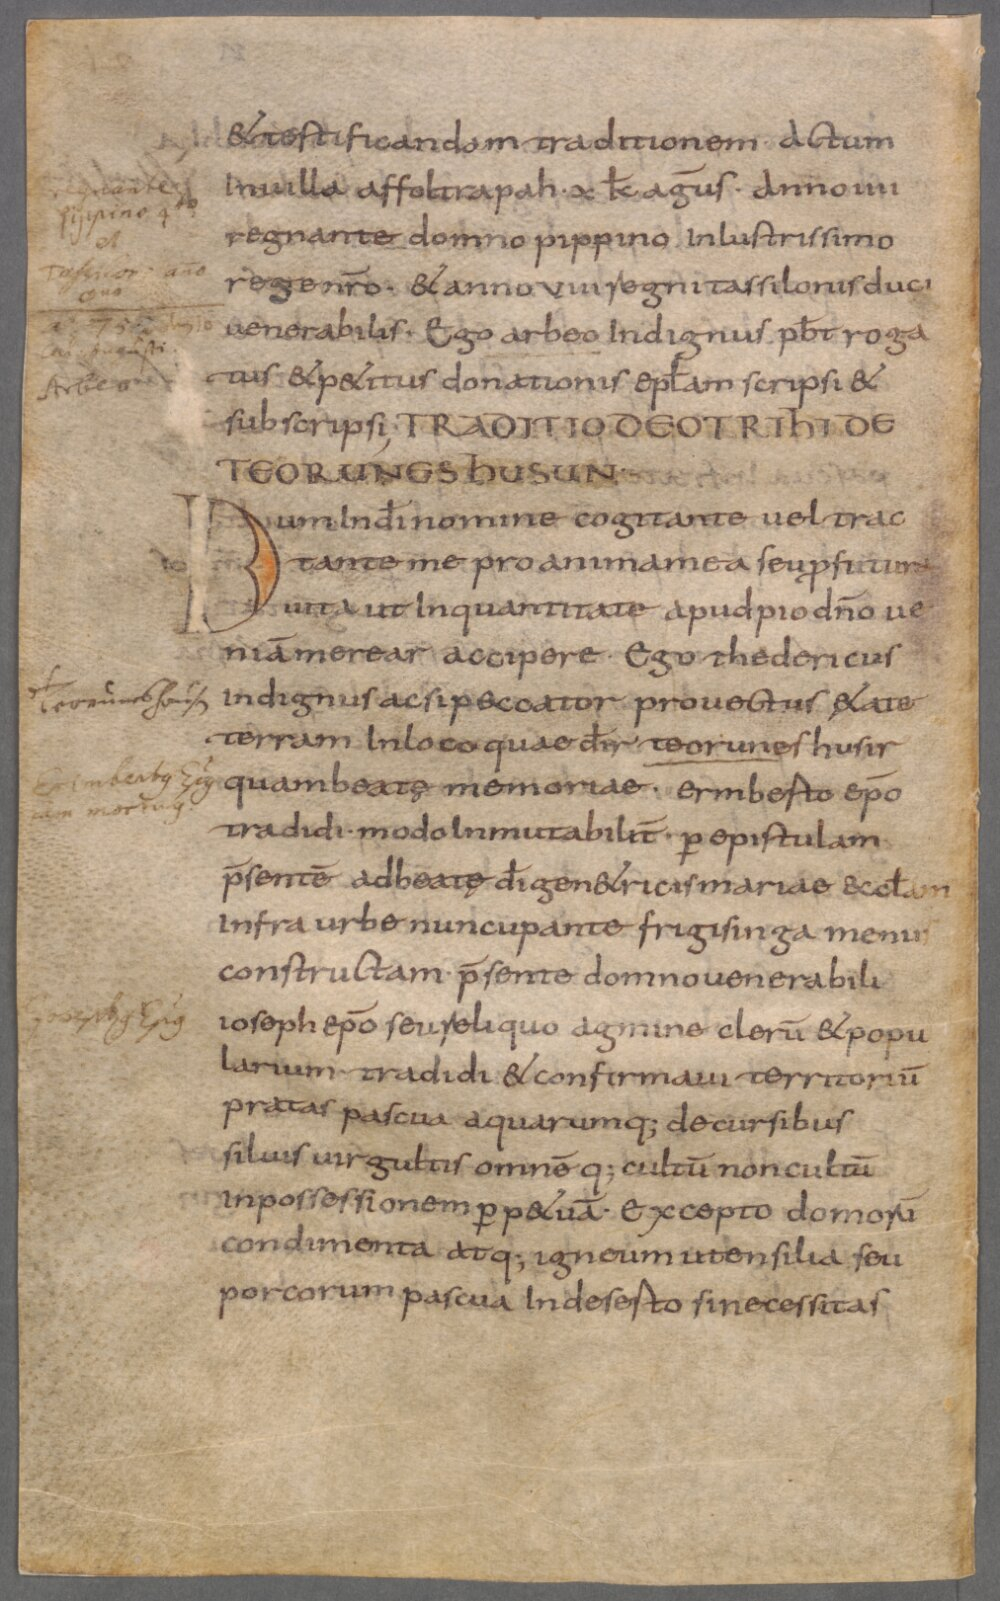 &testificandam traditionem actum
Inuilla affoltrapah · x kł agūs · Anno uiii
regnante domno pippino Inlustrissimo
rege nr̄o · & anno viii regni tassilonis duci
uenerabilis · Ego arbeo Indignus pb̄t roga
tus & p&itus donationis epłam scripsi &
subscripsi; TRADITIO DEOTRIhI DE
TEORUNGEShUSUN ·
Dum In dī nomine cogitante uel trac
tante me pro anima mea seu ꝓ futura
uita ut In quantitate apud pio dn̄o ue
niā merear accipere · Ego thedericus
indignus ac si peccator prouectus &ate
terram In loco quae dr̄ teoruneshusir
quam beatę memoriae · ermberto ep̄o
tradidi · modo Inmutabilit̄ · ꝑ epistulam
p̄sentē ad beatę dī gen&ricis mariae eccłam
Infra urbe nuncupante frigisinga menii
constructam · p̄sente domno uenerabili
ioseph ep̄o seu reliquo agmine clerū & popu
larium tradidi & confirmaui territoriū
pratas pascua aquarumq; decursibus
siluis uirgultis omnē q; cultū non cultū
in possessionem ꝑp&uā · Excepto domorū
condimenta atq; igneum utensilia seu
porcorum pascua Indesesto si necessitas
regnante
pippino 4to
et
ano
Arbeo
Teoruneshaus